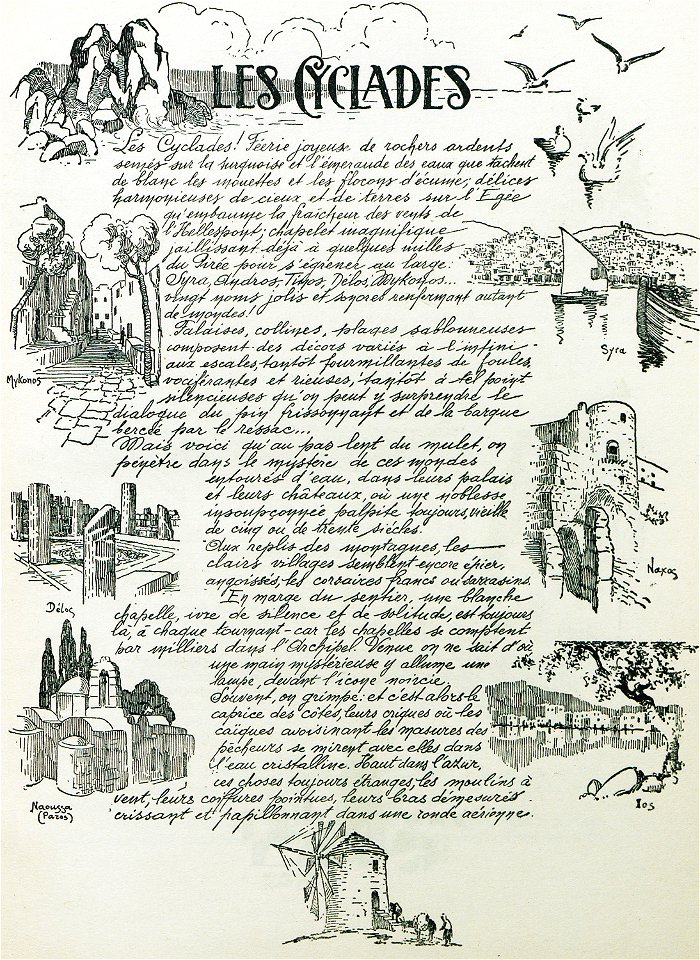 LES CYCLADES
Les Cyclades! Féerie joyeuse de rochers ardents
semés sur la turquoise et l'émeraude des eaux que tachent
de blanc les mouettes et les flocons d'écume; délices
harmonieuses de cieux et de terres sur l'Egée
qu'embaume la fraîcheur des vents de
l'Hellespont; chapelet magnifique
jaillissant déjà à quelques milles
du Pirée pour s'égrener au large:
Syra, Andros, Tinos, Délos, Mykonos...
vingt noms jolis et sonores renfermant autant
de mondes!
Falaises, collines, plages sablonneuses
composent des décors variés à l'infini
aux escales, tantôt fourmillantes de foules,
vociférantes et rieuses, tantôt à tel point
silencieuses qu'on peut y surprendre le
dialogue du pin frissonnant et de la barque
bercée par le ressac...
Mais voici qu'au pas lent du mulet, on
pénètre dans le mystère de ces mondes
entourés d'eau, dans leurs palais
et leurs châteaux, où une noblesse
insoupçonnée palpite toujours, vieille
de cinq ou de trente siècles.
Aux replis des montagnes, les
clairs villages semblent encore épier,
angoissés, les corsaires francs ou sarrasins.
En marge du sentier, une blanche
chapelle, ivre de silence et de solitude, est toujours
là, à chaque tournant - car les chapelles se comptent
par milliers dans l'Archipel. Venue on ne sait d'où
une main mystérieuse y allume une
lampe, devant l'icone noircie.
Souvent, on grimpe: et c'est alors le
caprice des côtes, leurs criques où les
caïques avoisinant les masures des
pêcheurs se mirent avec elles dans
l'eau cristalline. Haut dans l'azur,
ces choses toujours étranges, les moulins à
vent, leurs coiffures pointues, leurs bras démesurés
crissant et papillonnant dans une ronde aérienne.
Mykonos
Syra
Délos
Naxos
Naoussa
(Paros)
Ios